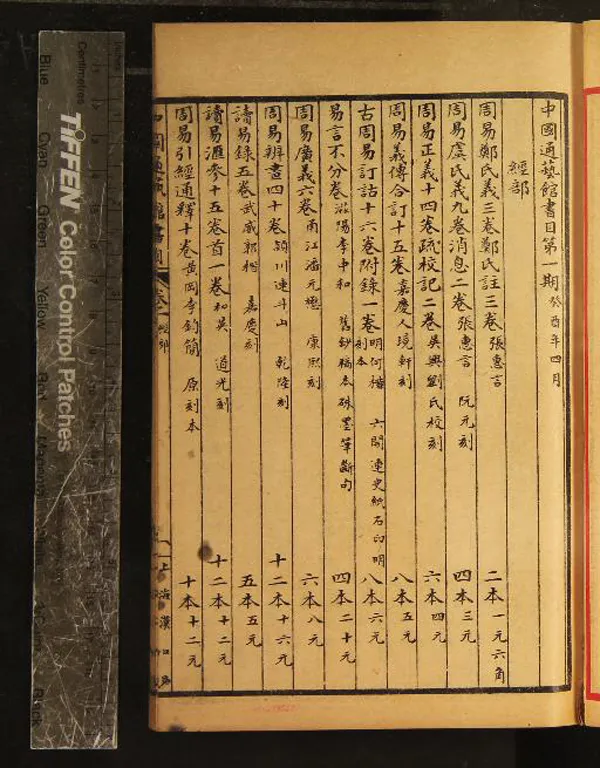 中國通藝館書目第一期 癸酉年四月
經部
周易鄭氏義三卷鄭氏註三卷 張惠言 二本 一元六角
周易虞氏義九卷消息二卷 張惠言 阮元刻 四本 三元
周易正義十四卷疏校記二卷 吳興劉氏校刻 六本 四元
周易義傳合訂十五卷 嘉慶人境軒刻 八本 五元
古周易訂詁十六卷附錄一卷 明何楷 六開連史紙石印明刻本 八本 六元
易言不分卷 滋陽李中和 舊鈔稿本硃墨筆斷句 四本 二十元
周易廣義六卷 潘元懋 康熙刻 六本 八元
周易辨畫四十卷 潁川連斗山 乾隆刻 十二本 十六元
讀易錄五卷 武威郭楷 嘉慶刻 五本 五元
讀易滙參十五卷首一卷 和英 道光刻 十二本 十二元
周易引經通釋十卷 黃岡李鈞簡 原刻本 十本 十二元
中國通藝館書目 卷一 經部 一 上海漢口路
TIFFEN Color Control Patches
Centimetres
Inches
Blue Cyan Green Yellow Red Magenta Black